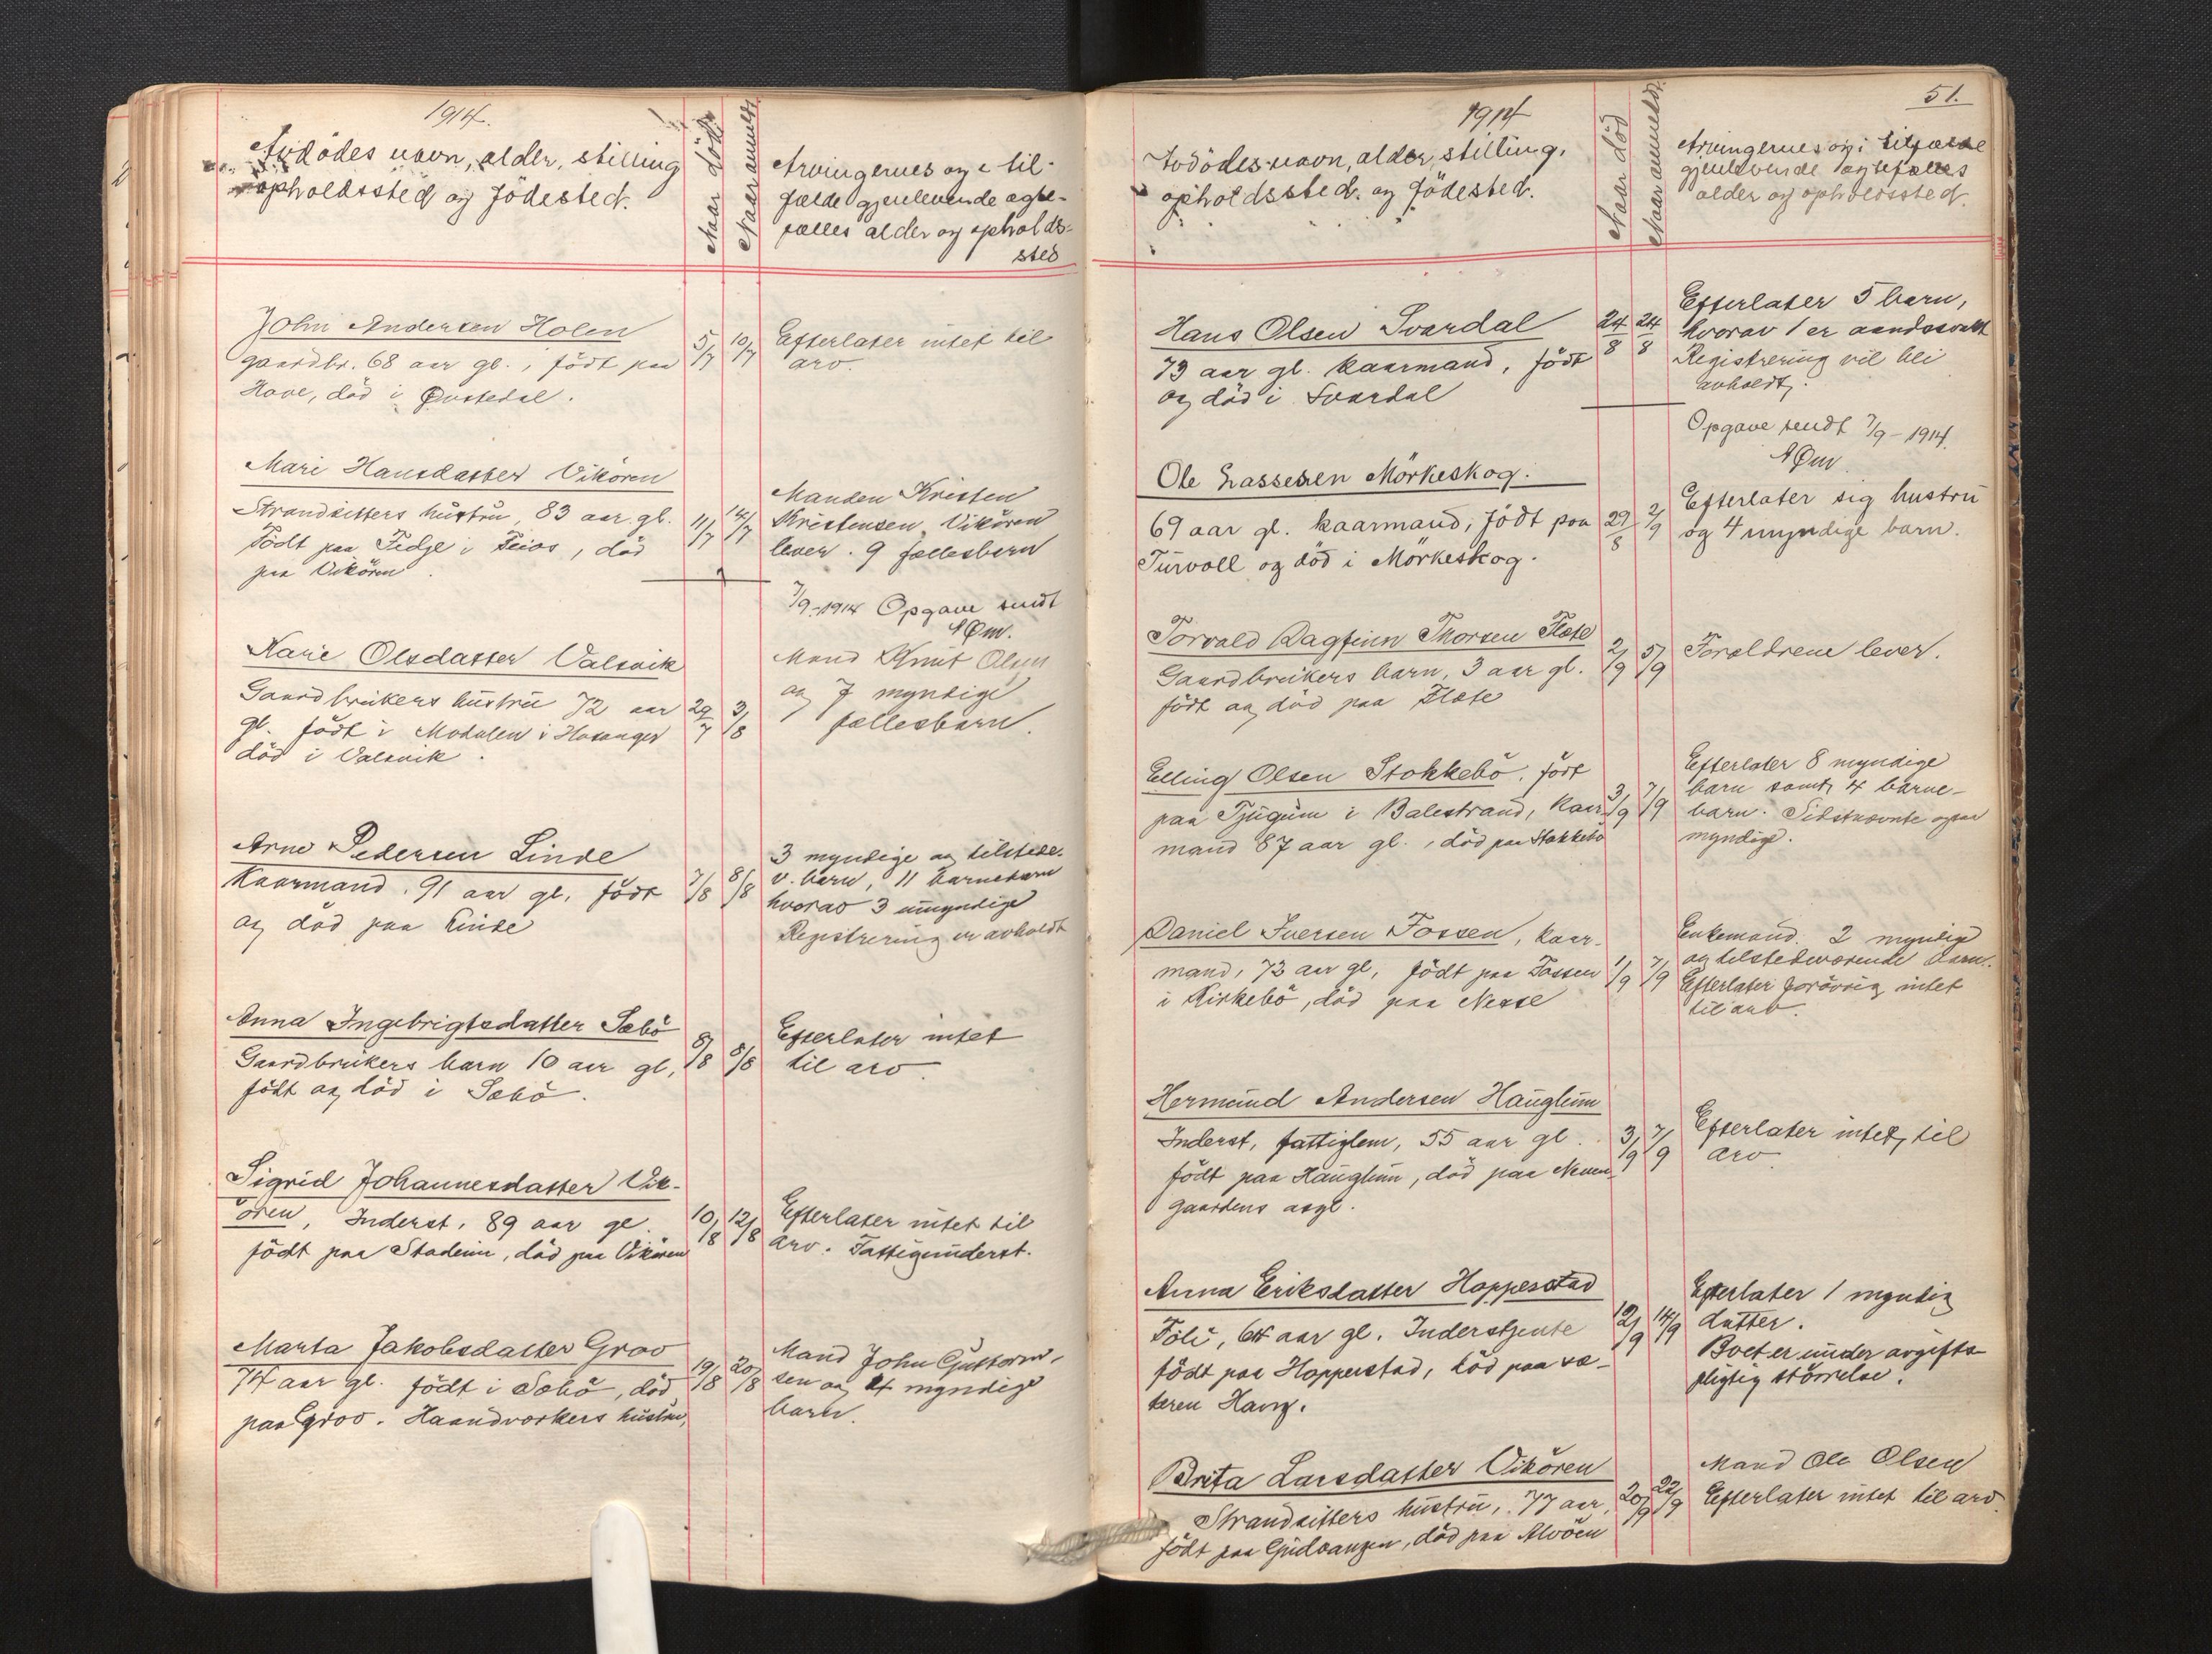 1914.
Avdödes navn, alder, stilling
opholdssted og födested.
Naar död
Naar anmeldt
Arvingernes og i til-
fælde gjenlevende ægte-
fælles alder og opholds-
sted
John Andersen Holen
gaardbr. 68 aar gl., födt paa
Hove, död i Ovstedal.
5/7
10/7
Efterlater intet til
arv.
Mari Hansdatter Vikören
Strandsitters hustru, 83 aar gl.
Födt paa Fedje i Feios, död
paa Vikören.
11/7
14/7
Manden Kristen
Kristensen Vikören
lever. 9 fællesbarn
7/9-1914 Opgave sendt
AØm.
Kari Olsdatter Valsvik
Gaardbrukers hustru 72 aar
gl. födt i Modalen i Hosanger
död i Valsvik.
29/7
3/8
Mand Knut Olsen
og 7 myndige
fællesbarn.
Arne Pedersen Linde
Kaarmand, 91 aar gl. födt
og död paa Linde
7/8
8/8
3 myndige og tilstede-
v. barn, 11 barnebarn
hvorav 3 umyndige
Registrering er avholdt
Anna Ingebrigtsdatter Sæbö
Gaardbrukers barn 10 aar gl,
födt og död i Sæbö.
8/8
8/8
Efterlater intet
til arv.
Sigrid Johannesdatter Vik-
ören, Inderst, 89 aar gl.
födt paa Stadeim, död paa Vikören
10/8
12/8
Efterlater intet til
arv. Fattiginderst.
Marta Jakobsdatter Grov
74 aar gl. födt i Sæbö, död
paa Grov. Haandverkers hustru,
19/8
20/8
Mand John Guttorm-
sen og 4 myndige
barn.
51.
1914
Avdödes navn, alder, stilling,
opholdssted og födested.
Naar död
Naar anmeldt.
Arvingernes og i tilfælde
gjenlevende ægtefælles
alder og opholdssted.
Hans Olsen Svardal
73 aar gl. kaarmand, födt
og död i Svardal
24/8
24/8
Efterlater 5 barn,
hvorav 1 er aandssvakt
Registrering vil bli
avholdt.
Opgave sendt 7/9-1914
AØm
Ole Lassesen Mörkeskog.
69 aar gl. kaarmand, födt paa
Turvoll og död i Mörkeskog.
29/8
2/9
Efterlater sig hustru
og 4 myndige barn.
Torvald Dagfinn Thorsen Flete
Gaardbrukers barn, 3 aar gl.
födt og död paa Flete
2/9
5/9
Forældrene lever.
Elling Olsen Stokkebö, födt
paa Tjugum i Balestrand, kaar-
mand 87 aar gl., död paa Stokkebö
3/9
7/9
Efterlater 8 myndige
barn samt 4 barne-
barn. Sidstnævnte ogsaa
myndige.
Daniel Iversen Fossen, kaar-
mand, 72 aar gl, födt paa Fossen
i Kirkebö, död paa Nesse
1/9
7/9
Enkemand. 2 myndige
og tilstedeværende barn.
Efterlater forövrig intet
til arv.
Hermund Andersen Hauglum
Inderst, fattiglem, 55 aar gl.
födt paa Hauglum, död paa Neven-
gaardens asyl.
3/9
7/9
Efterlater intet til
arv
Anna Eriksdatter Hopperstad
Föli, 64 aar gl. Inderstjente
födt paa Hopperstad, död paa sæ-
teren Haug.
12/9
14/9
Efterlater 1 myndig
datter.
Boet er under avgifts-
pligtig störrelse.
Brita Larsdatter Vikören
Strandsitters hustru, 77 aar,
födt paa Gudvangen, död paa Alvöen
20/9
22/9
Mand Ole Olsen
Efterlater intet til arv.